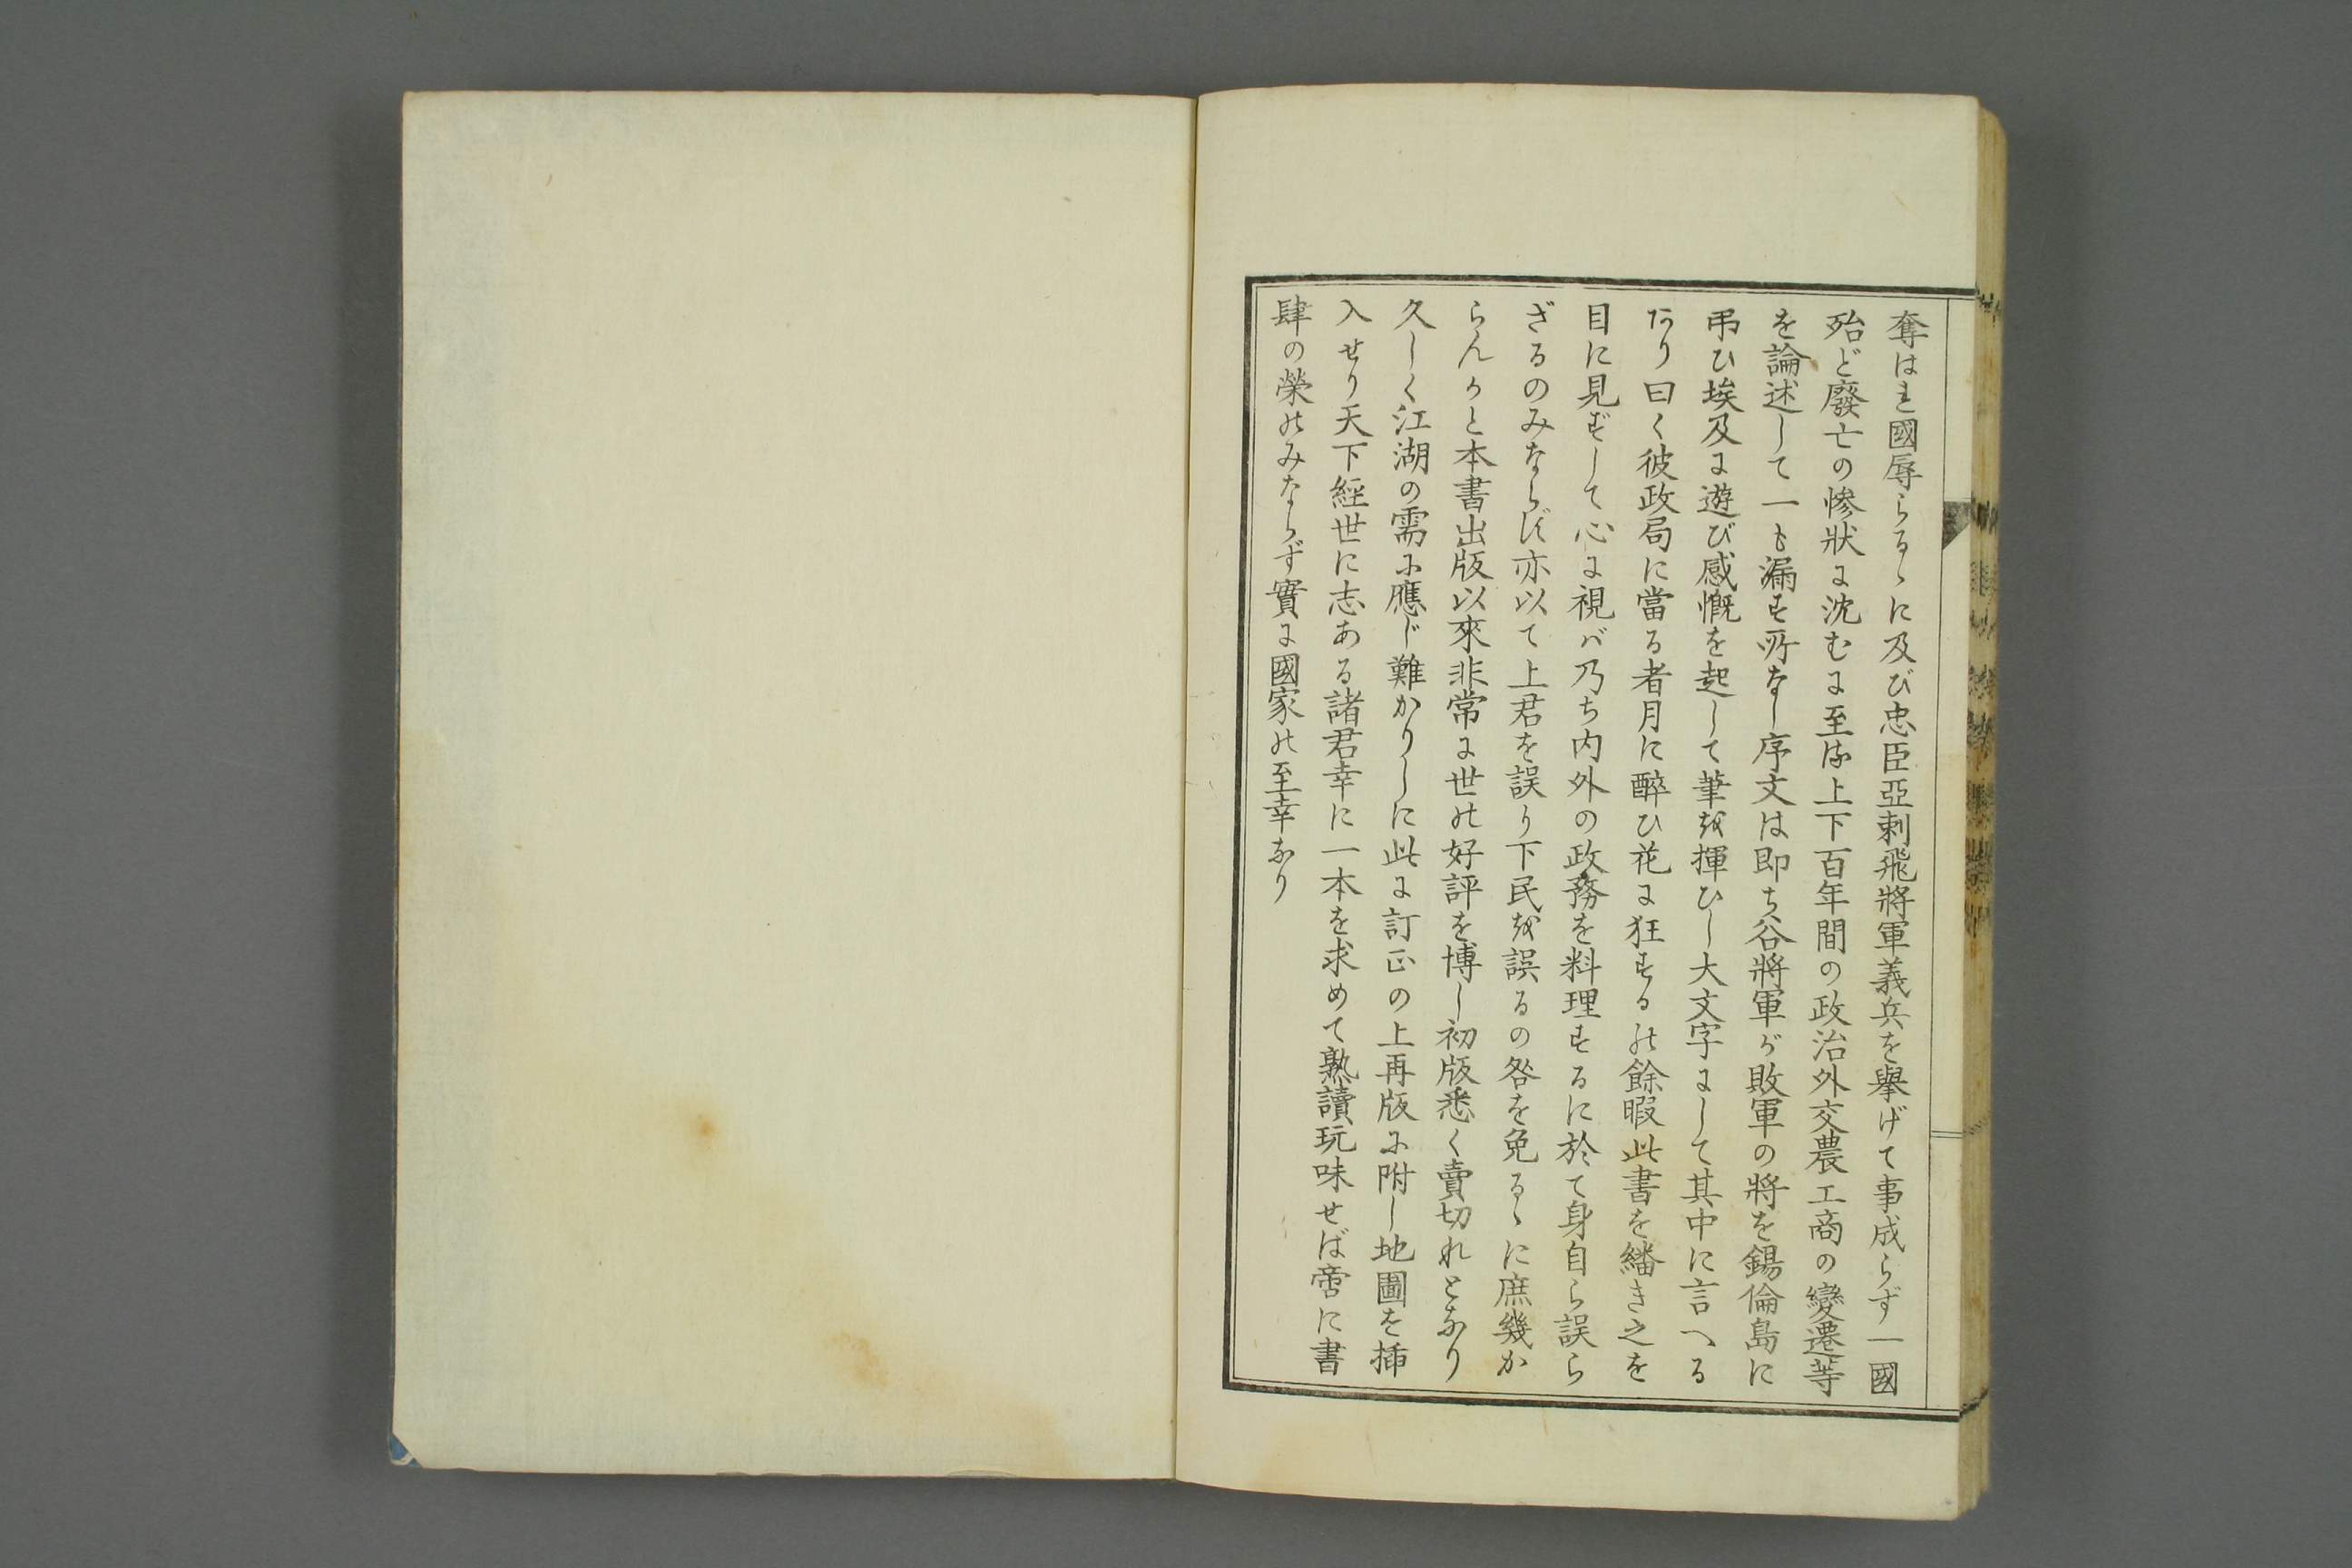 奪はれ國辱らるゝに及び忠臣亞剌飛將軍義兵を擧げて事成らず一國
殆ど廢亡の惨狀に沈むに至る上下百年間の政治外交農工商の變遷等
を論述して一も漏す所なし序文は即ち谷將軍が敗軍の將を錫倫島に
弔ひ埃及に遊び感慨を起して筆を揮ひし大文字にして其中に言へる
あり曰く彼政局に當る者月に醉ひ花に狂するの餘暇此書を繙き之を
目に見ずして心に視バ乃ち内外の政務を料理するに於て身自ら誤ら
ざるのみならず亦以て上君を誤り下民を誤るの咎を免るゝに庶幾か
らんかと本書出版以來非常に世の好評を博し初版悉く賣切れとなり
久しく江湖の需に應じ難かりしに此に訂正の上再版に附し地圖を挿
入せり天下經世に志ある諸君幸に一本を求めて熟讀玩味せば啻に書
肆の榮のみならず實に國家の至幸なり